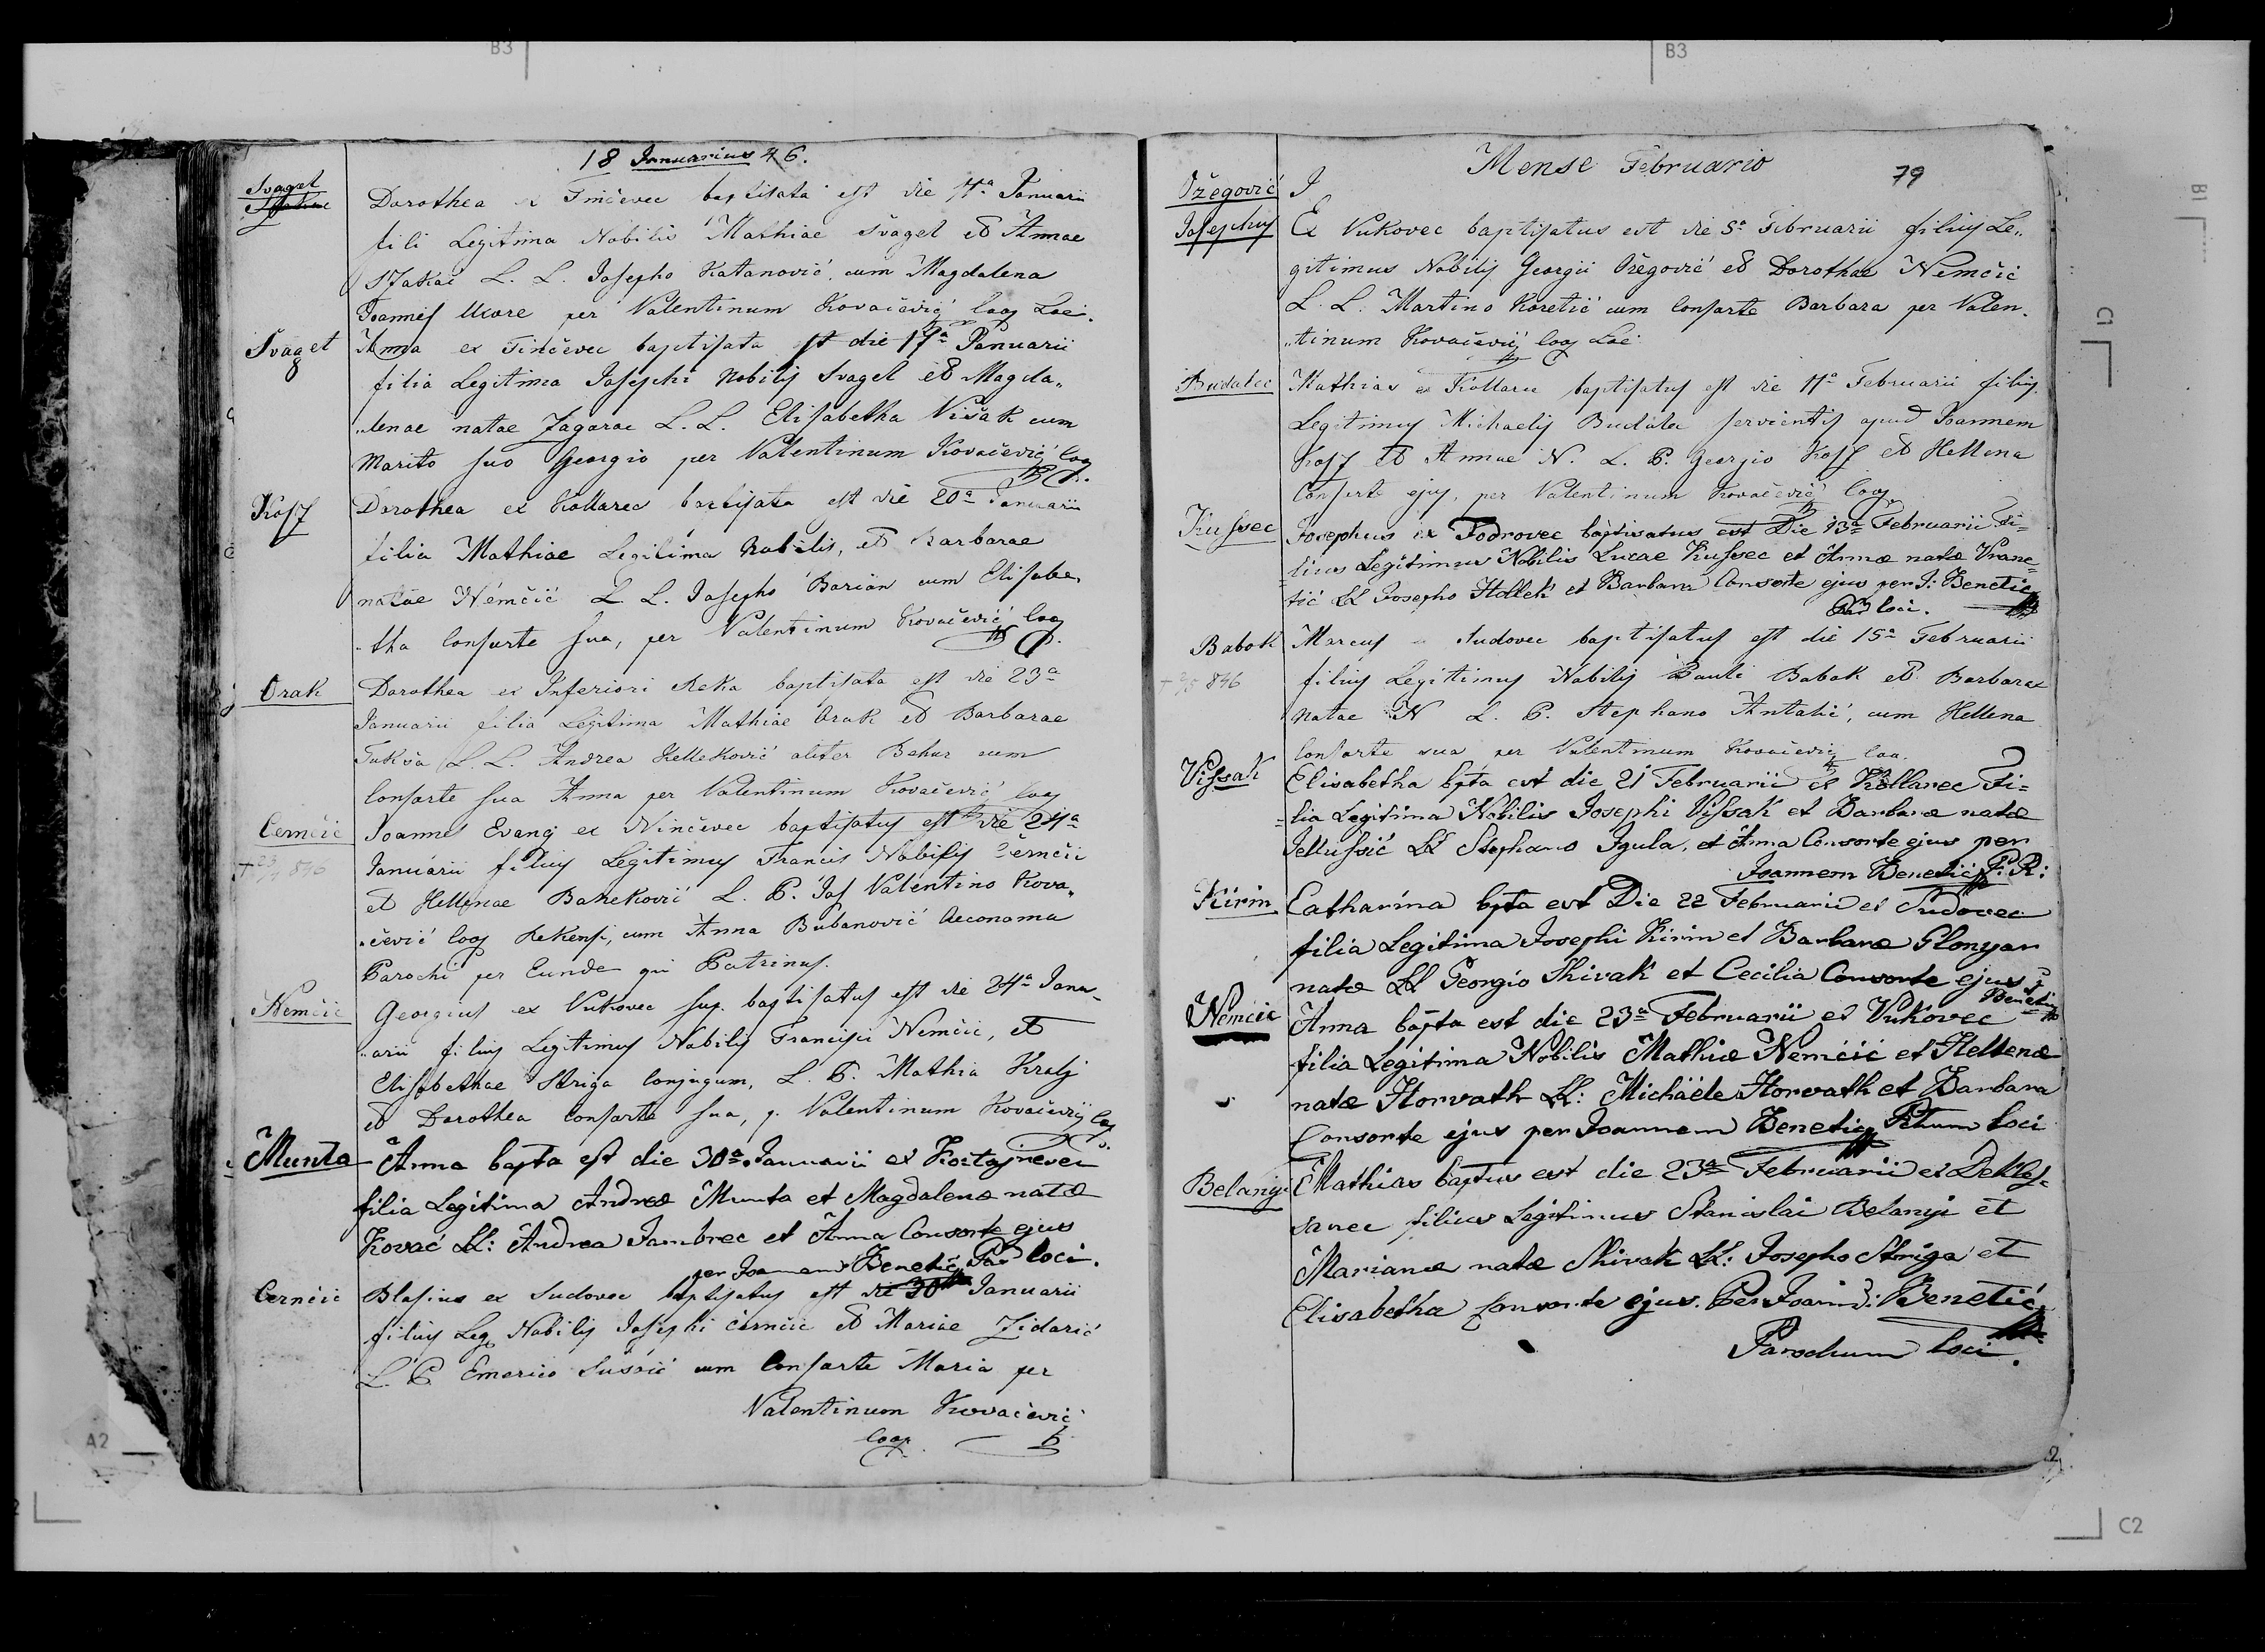 B3
B3
18 Januarius 46.
Svaget
Dorothea ex Finčevec baptisata est die 11a Januarii
fili Legitima Nobilis Mathiae Svaget et Annae
L. L. Josepho Katanović cum Magdalena
Joannes Uxore per Valentinum Kovačević Coop Loci.
Svaget
Anna ex Finčevec baptisata est die 17a Januarii
filia Legitima Josephi Nobilis Svagel et Magda„
„lenae natae Zagorac L. L. Elisabetha Višak cum
Marito suo Georgio per Valentinum Kovačević Coop
Kosz
Dorothea ex Kollarec baptisata est die 20a Januarii
filia Mathiae Legitima Nobilis, et Barbarae
natae Nemčić L. L. Josepho Barian cum Elisabe„
„tha Consorte sua, per Valentinum Kovačević Coop
Orak
Dorothea ex Inferiori Reka baptisata est die 23a
Januarii filia Legitima Mathiae Orak et Barbarae
Tukša L. L. Andrea Kelleković aliter Behur cum
Consorte sua Anna per Valentinum Kovačević Coop
Cernčić
† 23/7 846
Joannes Evang ex Ninčevec baptisatus est die 24a
Januarii filius Legitimus Francis Nobilis Černčić
et Hellenae Bakeković L. P. Jos Valentino Kova„
„čević Coop Rekensi, cum Anna Bubanović Aeconoma
Parochi per Eunde qui Patrinus.
Nemčić
Georgius ex Vukovec sup. baptisatus est die 24a Janu„
„arii filius Legitimus Nobilis Francisci Nemčić, et
Elisabethae Striga Conjugum, L. P. Mathia Kralj
et Dorothea Consorte sua, p. Valentinum Kovačević Coop
Munta
Anna bapta est die 30a Januarii ex
filia Legitima Andreæ Munta et Magdalenæ natæ
Kovać LL: Andrea Jambrec et Anna Consorte ejus
per Joannem Benetić Par loci.
Cernčić
Blasius ex Sudovec baptisatus est die 30a Januarii
filius Leg Nobilis Josephi Černčić et Mariae Zidarić
L. P. Emerico Sušsić cum Consorte Maria per
Valentinum Kovačević
Coop.
Mense Februario 79
Ožegović
Josephus
Ex Vukovec baptisatus est die 5a Februarii filius Le„
gitimus Nobilis Georgii Ožegović et Dorothae Nemčić
L. L. Martino Koretić cum Consorte Barbara per Valen.
„tinum Kovačević Coop Loci
Budalec
Mathias ex Kollarec baptisatus est die 11a Februarii filius
Legitimus Michaelis Budalec servientis apud Joannem
Kosz et Annae N. L. P. Georgio Kosz et Hellena
Consorte ejus, per Valentinum Kovačević Coop
Kussec
Josephus ex Fodrovec baptisatus est Die 13a Februarii Fi=
=lius Legitimus Nobilis Lucae Kussec et Annæ natæ Vrane=
tić LL Josepho Hallek et Barbara Consorte ejus per J: Benetić
Par loci.
Babok
† 846
Marcus ex Sudovec baptisatus est die 15a Februarii
filius Legitimus Nobilis Pauli Babok et Barbarae
natae N L. P. Stephano Antalić, cum Hellena
Consorte sua per Valentinum Kovačević Coo.
Vissak
Elisabetha bpta est die 21 Februarii ex Kollarec Fi=
=lia Legitima Nobilis Josephi Vissak et Barbaræ natæ
Jellussić LL Stephano Igula, et Anna Consorte ejus per
Joannem Benetić P: R:
Kirin
Catharina bpta est Die 22 Februarii ex Sudovec
filia Legitima Josephi Kirin et Barbaræ Glonyar
natæ LL Georgio Shivak et Cecilia Consorte ejus p J
Benetić
Nemčić
Anna bapta est die 23a Februarii ex Vukovec
filia Legitima Nobilis Mathiæ Nemčić et Hellenæ
natæ Horvath LL: Michaële Horvath et Barbara
Consorte ejus per Joannem Benetić Pchum loci
Belanyi
Mathias baptus est die 23a Februarii ex Dekles-
sanec filius Legitimus Stanislai Belanyi et
Marianæ natæ Shivak LL: Josepho Striga et
Elisabetha Consorte ejus. Per Joann: Benetić
Parochum loci.
B1
C1
A2
C2
2